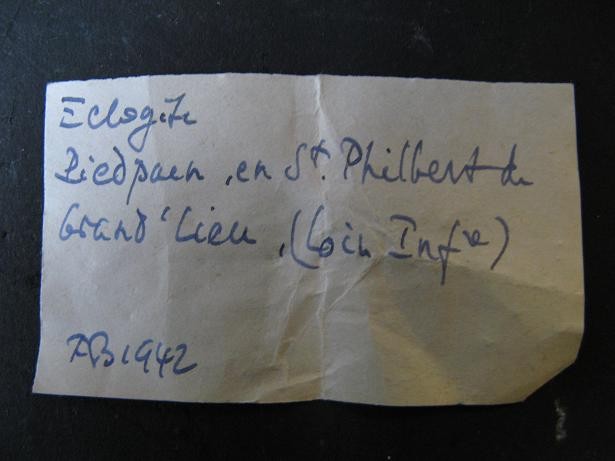 Eclogite
Piedpain, en St. Philbert de
Grand'Lieu, (Loire Infre)
AB 1942